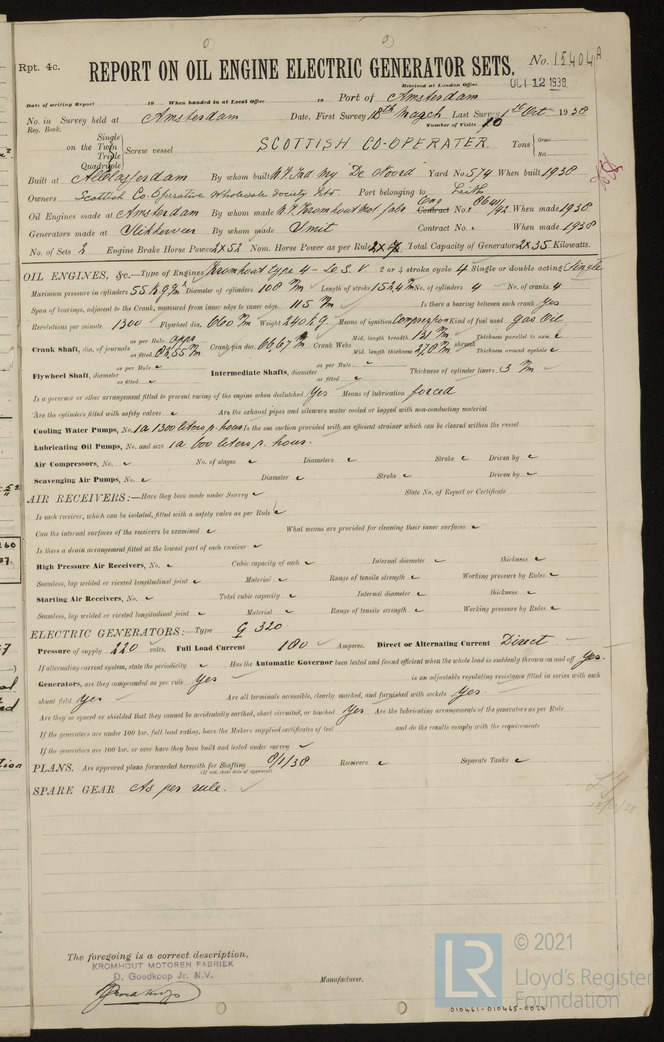 Rpt. 4c.
No. 15404A
REPORT ON OIL ENGINE ELECTRIC GENERATOR SETS.
Received at London Office OCT 12 1938
Date of writing Report 19 When handed in at Local Office 19 Port of Amsterdam
No. in Survey held at Amsterdam Date, First Survey 18th March Last Survey 1st Oct 1938
Reg. Book. Number of Visits 10
Single
on the Twin
Triple
Quadruple
Screw vessel SCOTTISH CO-OPERATER. Tons Gross
Net
Built at Alblasserdam By whom built "De Noord" Yard No. 574 When built 1938
Owners Scottish Co. Operative Wholesale Society Port belonging to Leith
Oil Engines made at Amsterdam By whom made Kromhout Mot. fabr. Contract No. When made 1938
Generators made at Slikkerveer By whom made Smit Contract No. When made 1938
No. of Sets 2 Engine Brake Horse Power 2x52 Nom. Horse Power as per Rule Total Capacity of Generators 2x35 Kilowatts.
OIL ENGINES, &c.—Type of Engines Kromhout type 4- 2 or 4 stroke cycle 4 Single or double acting Single
Maximum pressure in cylinders 55 Diameter of cylinders 108 m/m Length of stroke 152.4 m/m No. of cylinders 4 No. of cranks 4
Span of bearings, adjacent to the Crank, measured from inner edge to inner edge 115 m/m Is there a bearing between each crank yes
Revolutions per minute 1300 Flywheel dia. 660 m/m Weight 240 kg. Means of ignition Compression Kind of fuel used gas oil
Crank Shaft, dia. of journals as per Rule appr. as fitted Crank pin dia. 66,67 m/m Crank Webs Mid. length breadth 121 m/m Mid. length thickness Thickness parallel to axis Thickness around eyehole
Flywheel Shaft, diameter as per Rule as fitted Intermediate Shafts, diameter as per Rule as fitted Thickness of cylinder liners 3 m/m
Is a governor or other arrangement fitted to prevent racing of the engine when declutched Yes Means of lubrication forced
Are the cylinders fitted with safety valves Are the exhaust pipes and silencers water cooled or lagged with non-conducting material
Cooling Water Pumps, No. 1 a 1300 liters p. hour Is the sea suction provided with an efficient strainer which can be cleared within the vessel
Lubricating Oil Pumps, No. and size 1 a 600 liters p. hour.
Air Compressors, No. No. of stages Diameters Stroke Driven by
Scavenging Air Pumps, No. Diameter Stroke Driven by
AIR RECEIVERS:—Have they been made under Survey State No. of Report or Certificate
Is each receiver, which can be isolated, fitted with a safety valve as per Rule
Can the internal surfaces of the receivers be examined What means are provided for cleaning their inner surfaces
Is there a drain arrangement fitted at the lowest part of each receiver
High Pressure Air Receivers, No. Cubic capacity of each Internal diameter thickness
Seamless, lap welded or riveted longitudinal joint Material Range of tensile strength Working pressure by Rules
Starting Air Receivers, No. Total cubic capacity Internal diameter thickness
Seamless, lap welded or riveted longitudinal joint Material Range of tensile strength Working pressure by Rules
ELECTRIC GENERATORS:—Type G 320
Pressure of supply 220 volts. Full Load Current 180 Amperes. Direct or Alternating Current Direct
If alternating current system, state the periodicity Has the Automatic Governor been tested and found efficient when the whole load is suddenly thrown on and off yes.
Generators, are they compounded as per rule Yes is an adjustable regulating resistance fitted in series with each
shunt field Yes Are all terminals accessible, clearly marked, and furnished with sockets Yes.
Are they so spaced or shielded that they cannot be accidentally earthed, short circuited, or touched Yes Are the lubricating arrangements of the generators as per Rule
If the generators are under 100 kw. full load rating, have the Makers supplied certificates of test and do the results comply with the requirements
If the generators are 100 kw. or over have they been built and tested under survey
PLANS. Are approved plans forwarded herewith for Shafting 8/1/38 Receivers Separate Tanks
(If not, state date of approval)
SPARE GEAR As per rule.
The foregoing is a correct description,
KROMHOUT MOTOREN FABRIEK
D. Goedkoop Jr. N.V.
Manufacturer.
LR
© 2021
Lloyd's Register
Foundation
010461-010465-0026